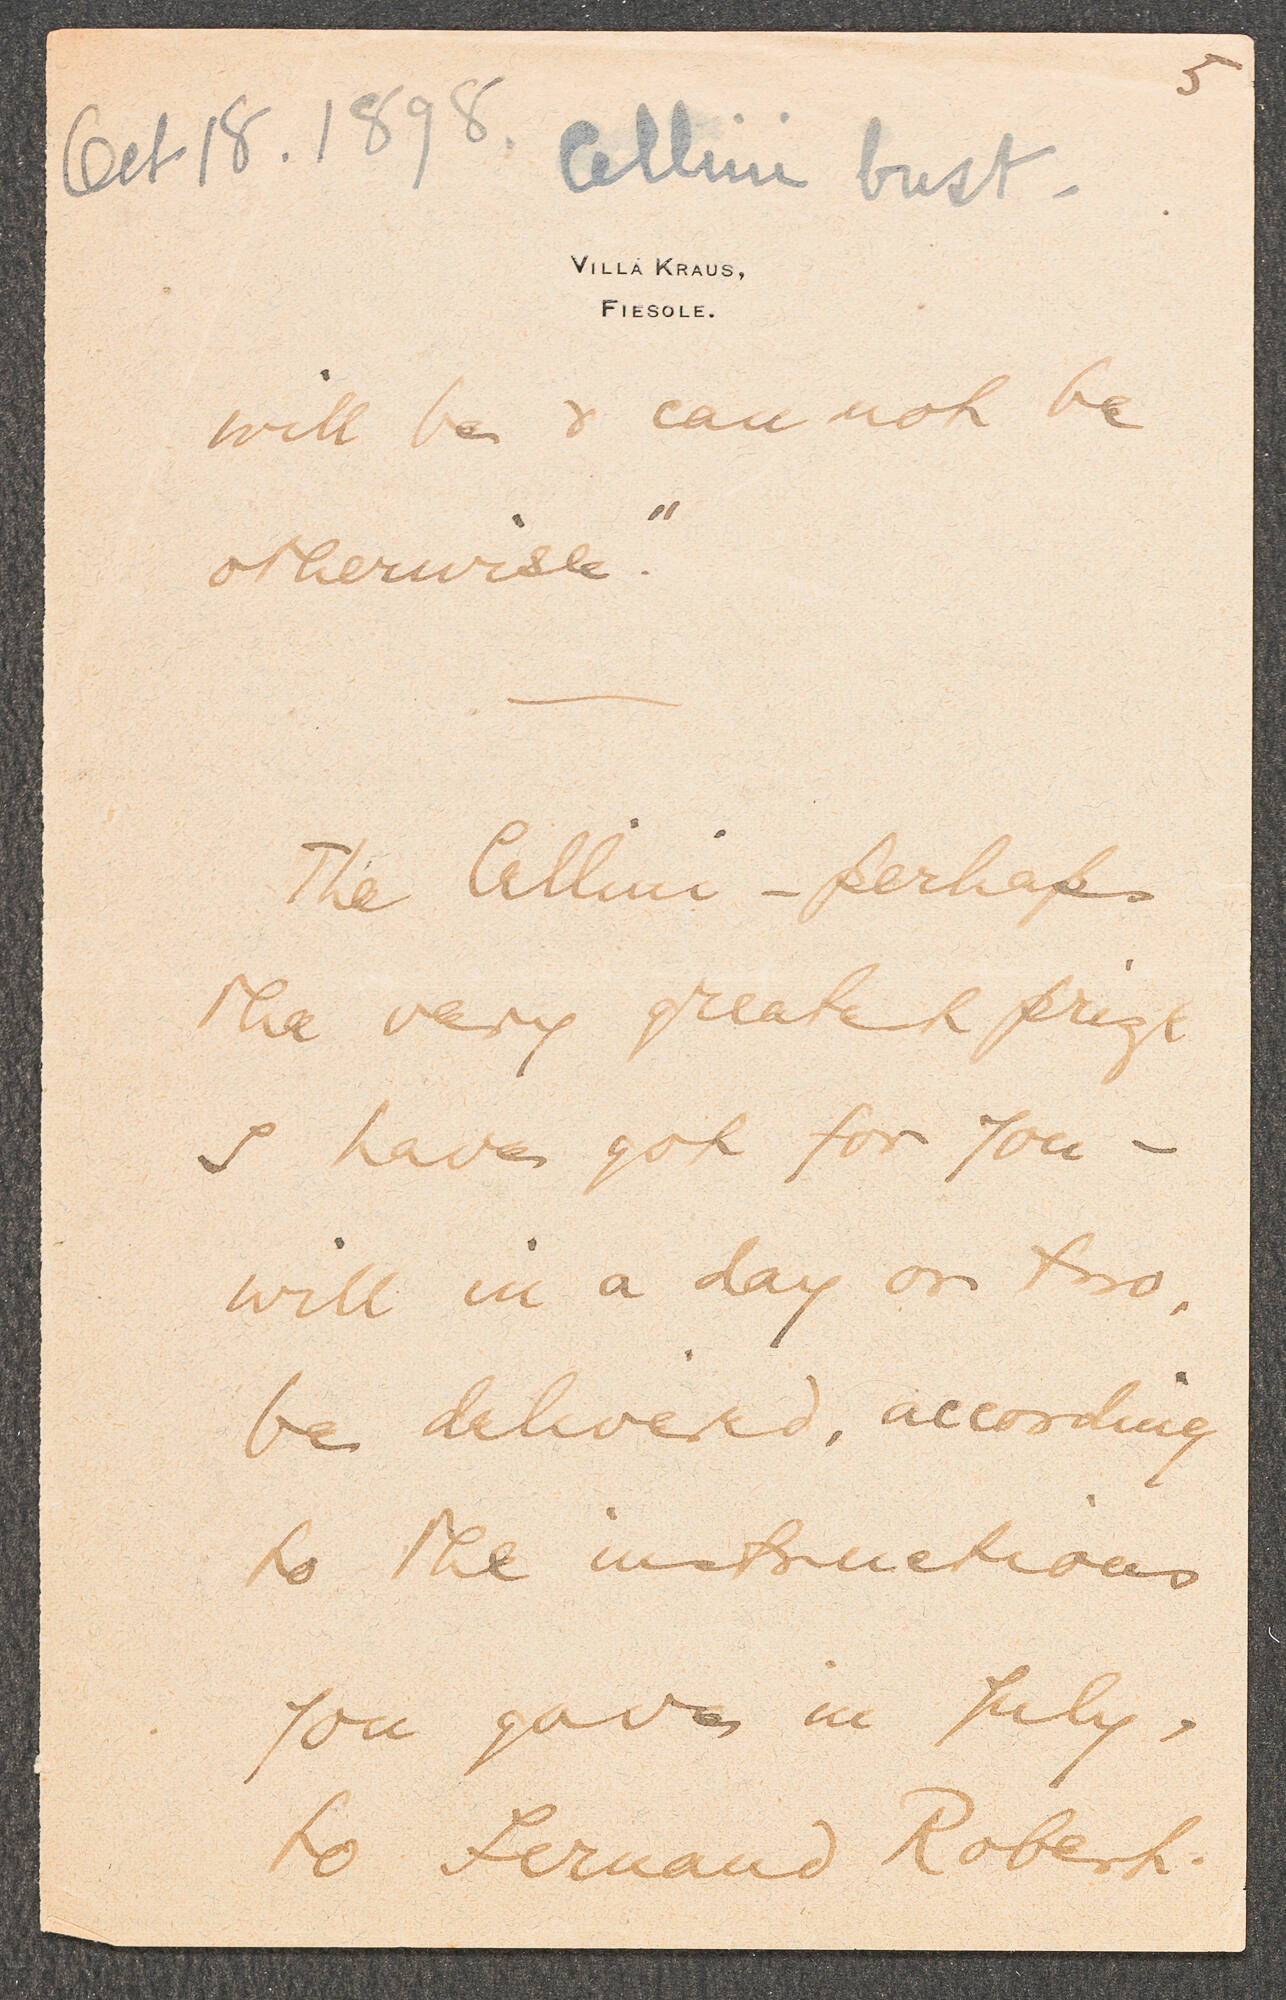 5
Oct 18. 1898. Cellini bust -
VILLA KRAUS,
FIESOLE.
will be & can not be
otherwise."
The Cellini - perhaps
the very greatest prize
I have got for you -
will in a day or two,
be delivered, according
to the instructions
you gave in July,
to Fernand Robert.